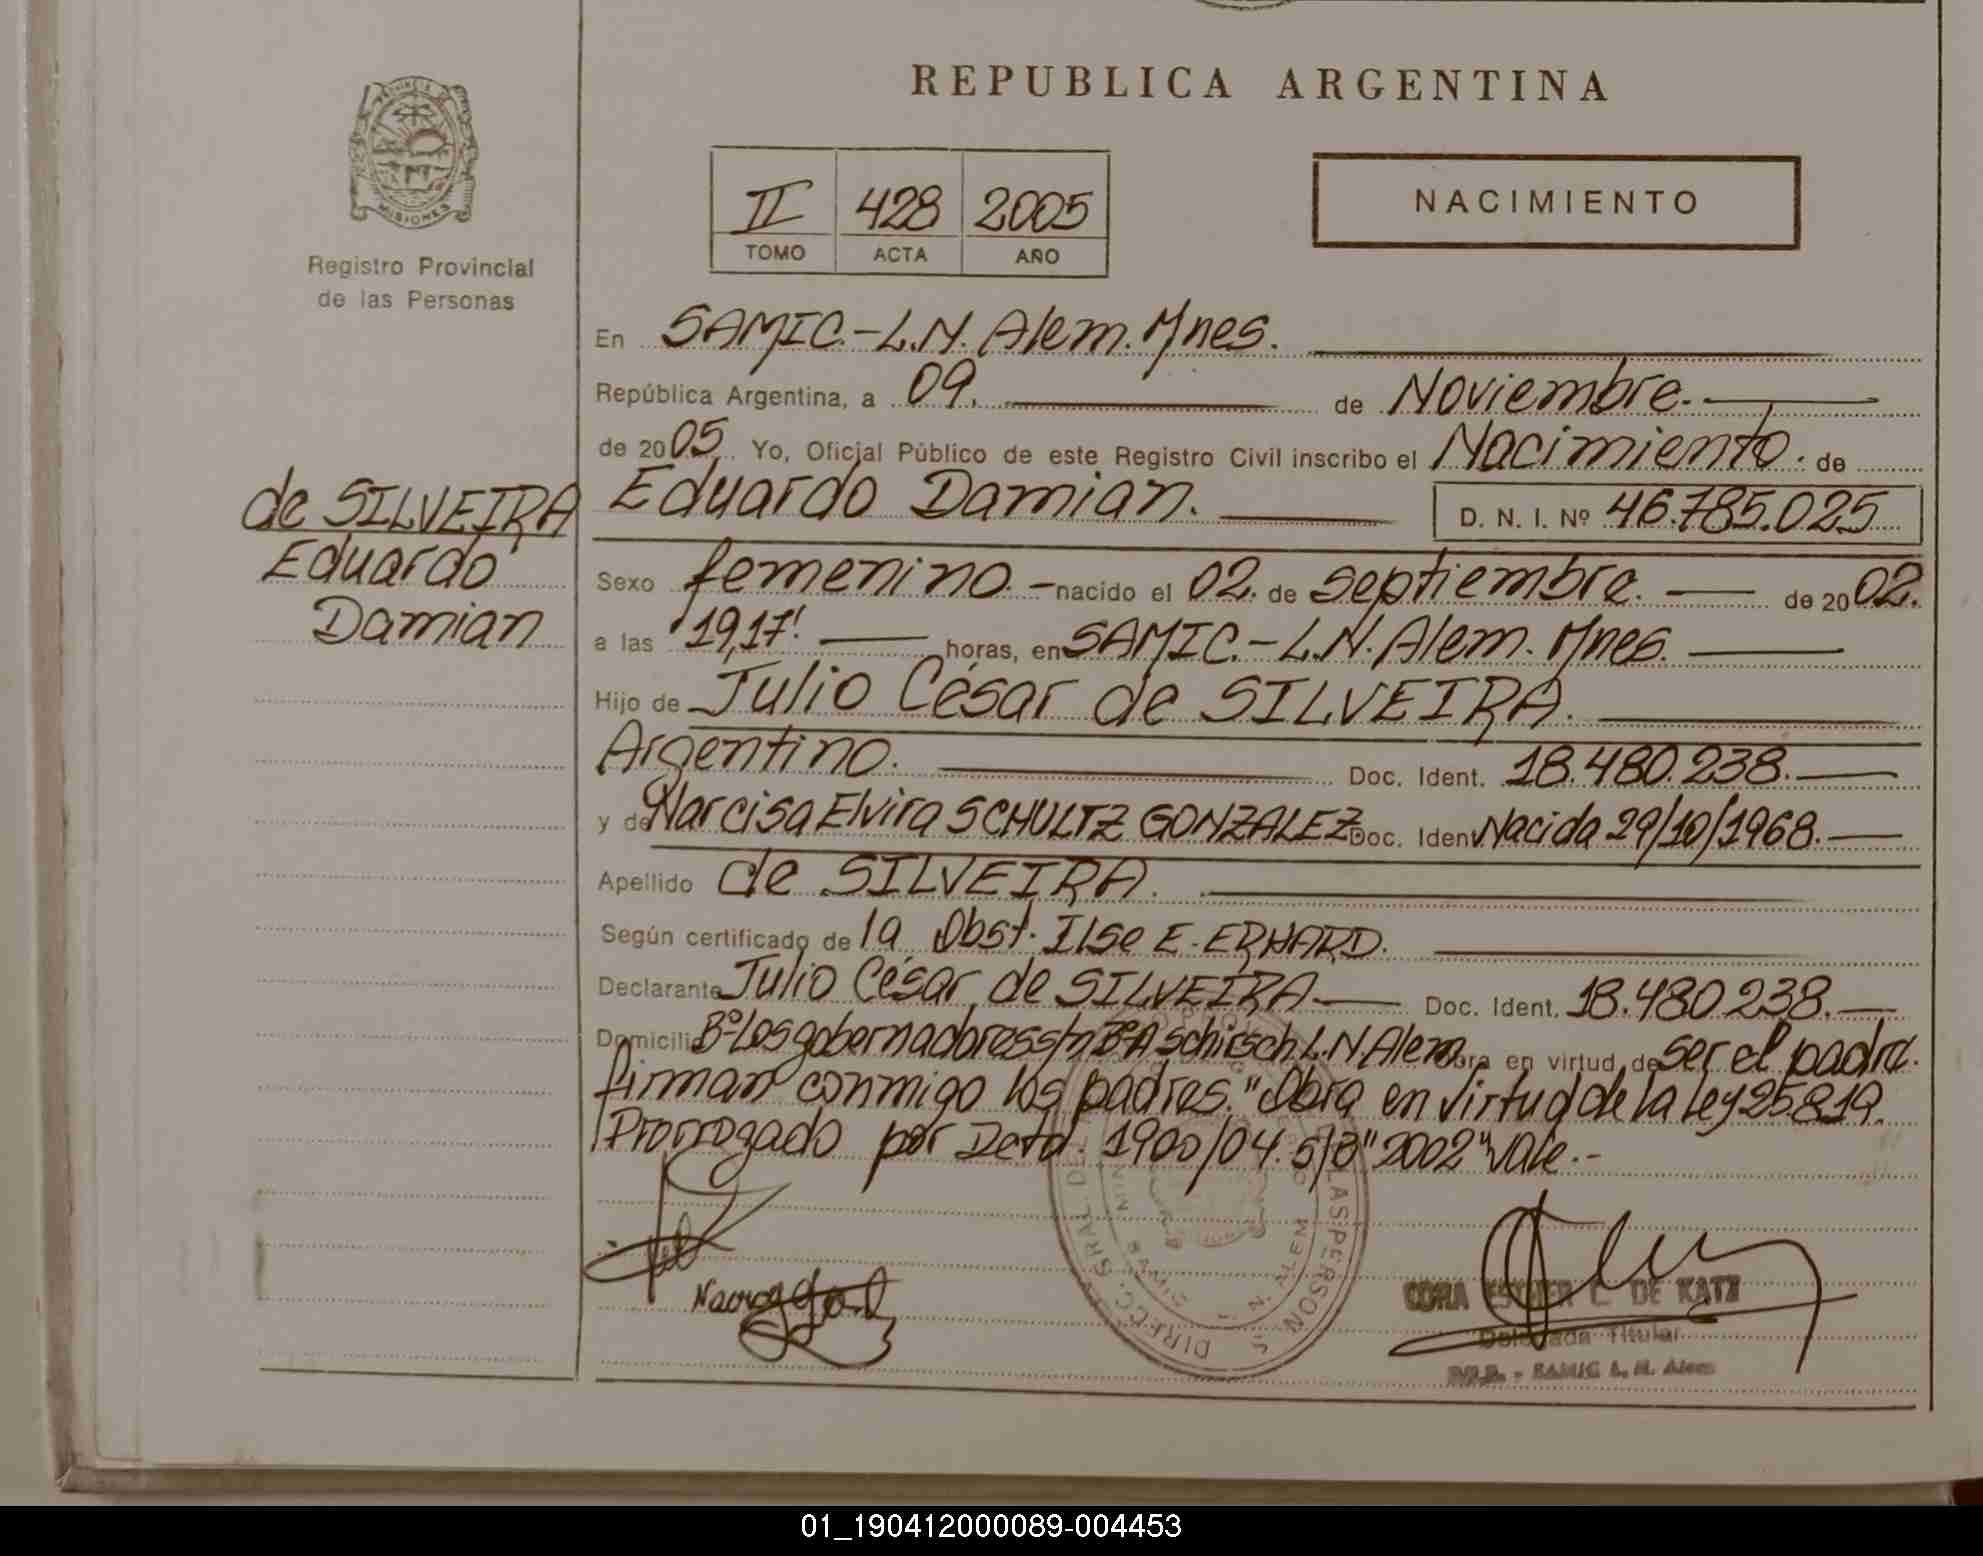 REPUBLICA ARGENTINA
PROVINCIA DE MISIONES
Registro Provincial
de las Personas
II 428 2005
TOMO ACTA AÑO
NACIMIENTO
En SAMIC.-L.N. Alem. Mnes.
República Argentina, a 09. de Noviembre.
de 2005 Yo, Oficial Público de este Registro Civil inscribo el Nacimiento. de
de SILVEIRA
Eduardo
Damian
Eduardo Damian. D. N. I. Nº 46.785.025
Sexo femenino.- nacido el 02. de septiembre. de 2002.
a las 19,17' horas, en SAMIC.-L.N. Alem. Mnes.
Hijo de Julio César de SILVEIRA.
Argentino. Doc. Ident. 18.480.238.
y de Narcisa Elvira SCHULTZ GONZALEZ Doc. Iden Nacida 29/10/1968.
Apellido de SILVEIRA.
Según certificado de la Obst. Ilse E. ERHARD.
Declarante Julio César de SILVEIRA Doc. Ident. 18.480.238.
Domicilio Bº Los gobernadores s/n Bº A Schirsch L.N Alem obra en virtud de ser el padre.
firman conmigo los padres. "Obra en virtud de la ley 25.819.
Prorrogado por Dcto. 1900/04. s/b "2002" Vale.-
DIREC. GRAL DEL LAS PERSONAS
L. N. ALEM
CORA ESTHER C. DE KATZ
Delegada Titular
SAMIC L. N. Alem
01_190412000089-004453